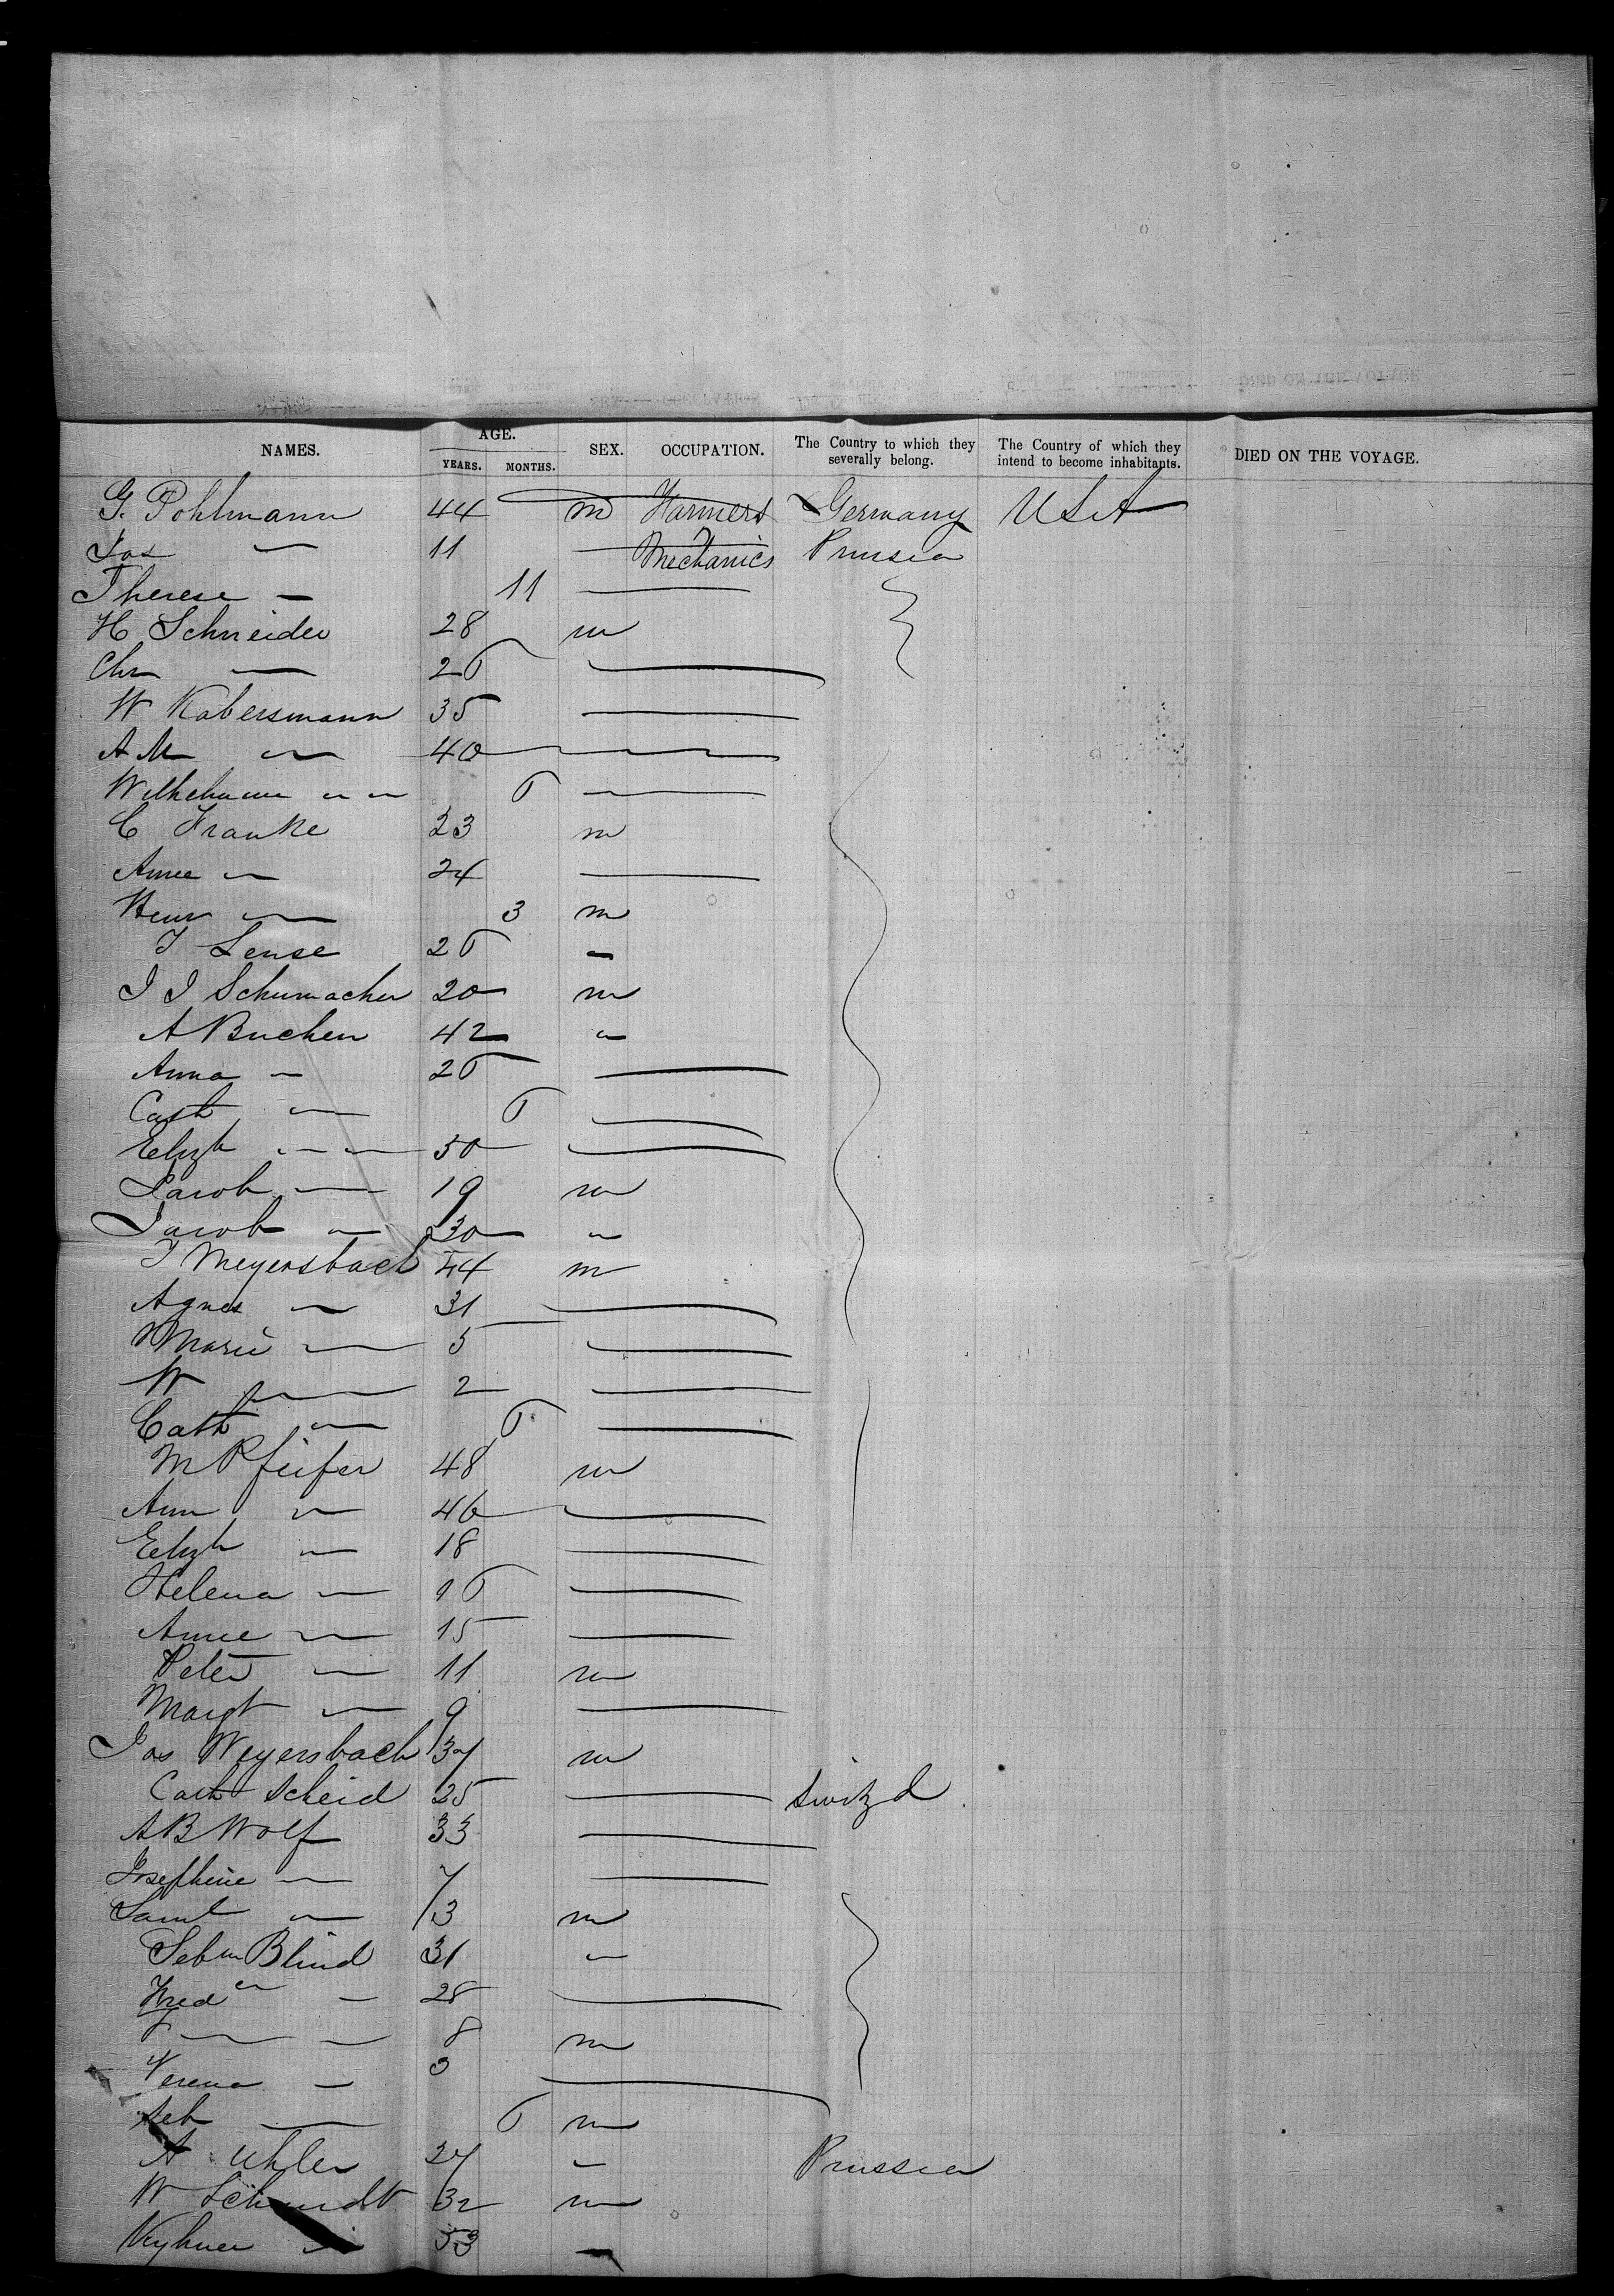 NAMES. AGE. YEARS. MONTHS. SEX. OCCUPATION. The Country to which they severally belong. The Country of which they intend to become inhabitants. DIED ON THE VOYAGE.
G. Pohlmann 44 m Farmers Germany USA
Jos — 11 — Mechanics Prussia
Therese — 11 —
H Schneider 28 m
Chr — 26 —
W Kabersmann 35 —
A M — 40 —
Wilhelmine — — 6 —
C Franke 23 m
Annee — 24 —
Henr — 3 m
J Lense 26 —
J J Schumacher 20 m
A Buchen 42 —
Anna — 26 —
Cath — 6 —
Elizh — — 50 —
Jacob — 19 m
Jacob — 30 —
J Meyersbach 44 m
Agnes — 31 —
Marie — 5 —
W — 2 —
Cath — 6 —
M Pfeifer 48 m
Ann — 46 —
Elizh — 18 —
Helena — 16 —
Annee — 15 —
Peter — 11 m
Margt — 9 —
Jos Weyersbach 37 m
Cath Scheid 25 — Switzd
A B Wolf 33 —
Josephine — 7 —
Saml — 3 m
Sebn Blind 31 —
Fred — 28 —
F — — 8 m
Verena — 3 —
Seb — 6 m
A Uhler 27 — Prussia
W Schmidt 32 m
— 53 —